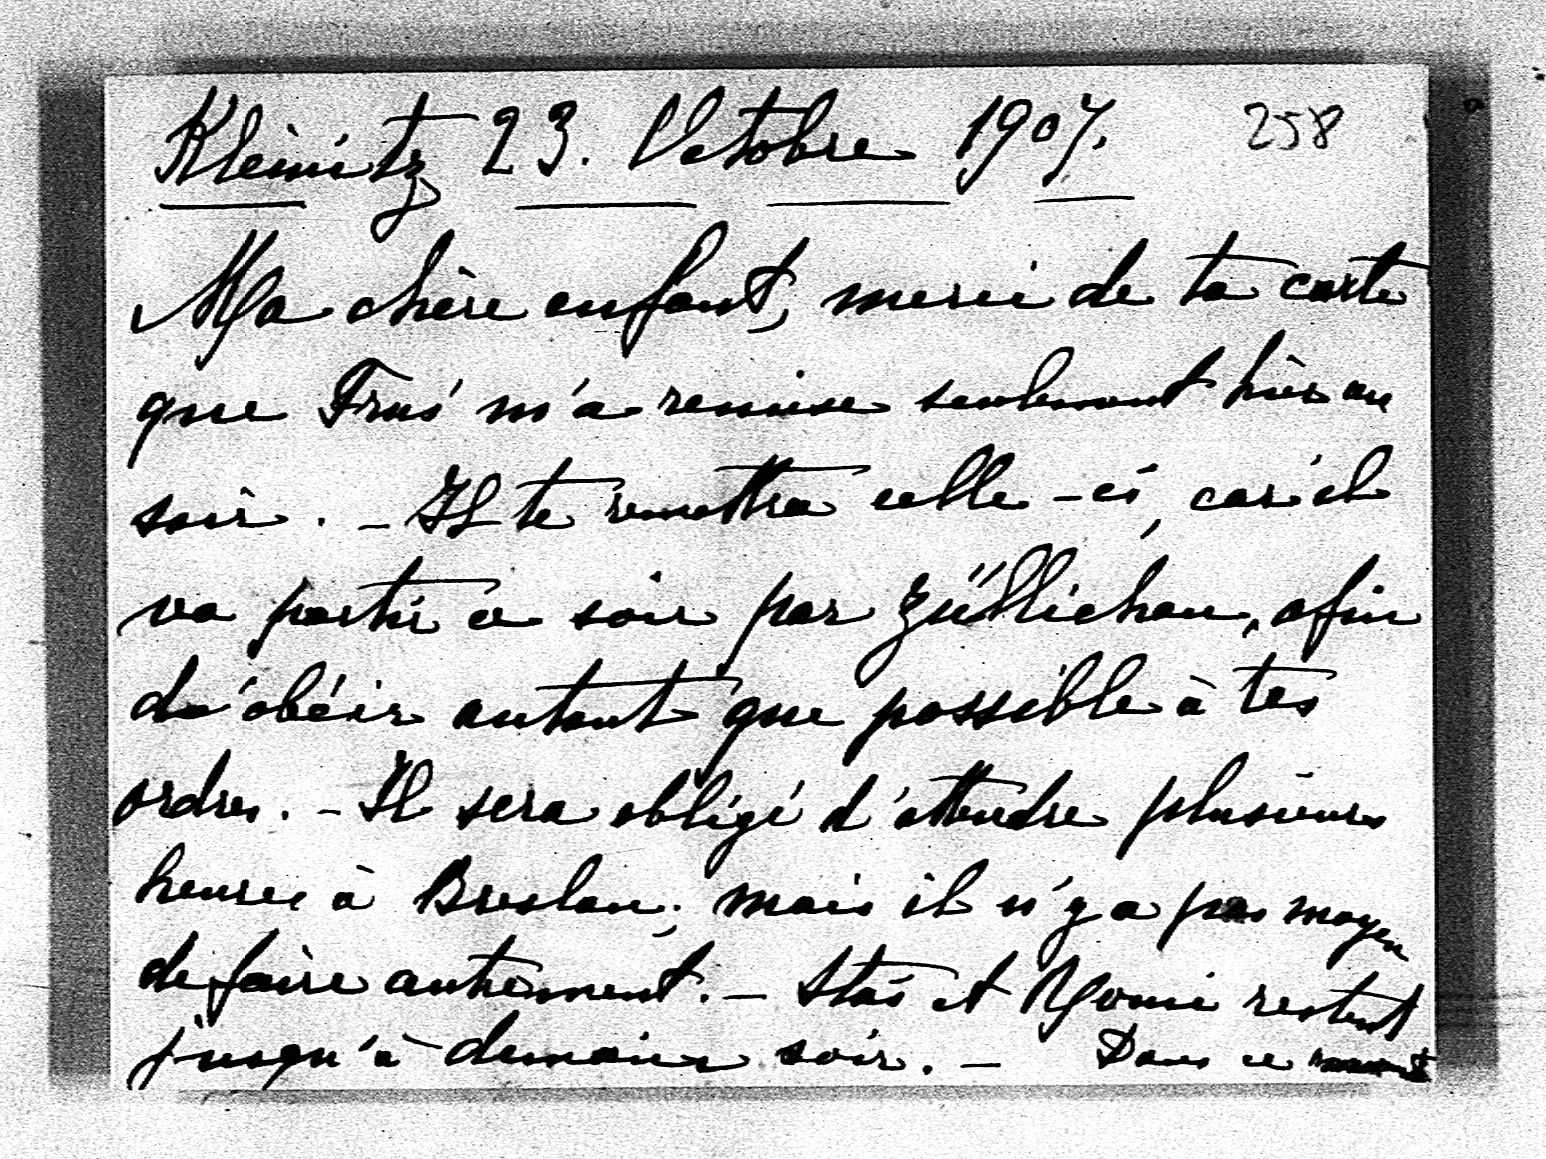 Kleinitz 23. Octobre 1907. 258
Ma chère enfant, merci de ta carte
que Frus' m'a remise seulement hier au
soir. - Il te remettra celle-ci, car il
va partir ce soir par Züllichau, afin
d'obéir autant que possible à tes
ordres. - Il sera obligé d'attendre plusieurs
heures à Breslau; mais il n'y a pas moyen
de faire autrement. - Stas et Mouni restent
jusqu'à demain soir. - Dans ce moment